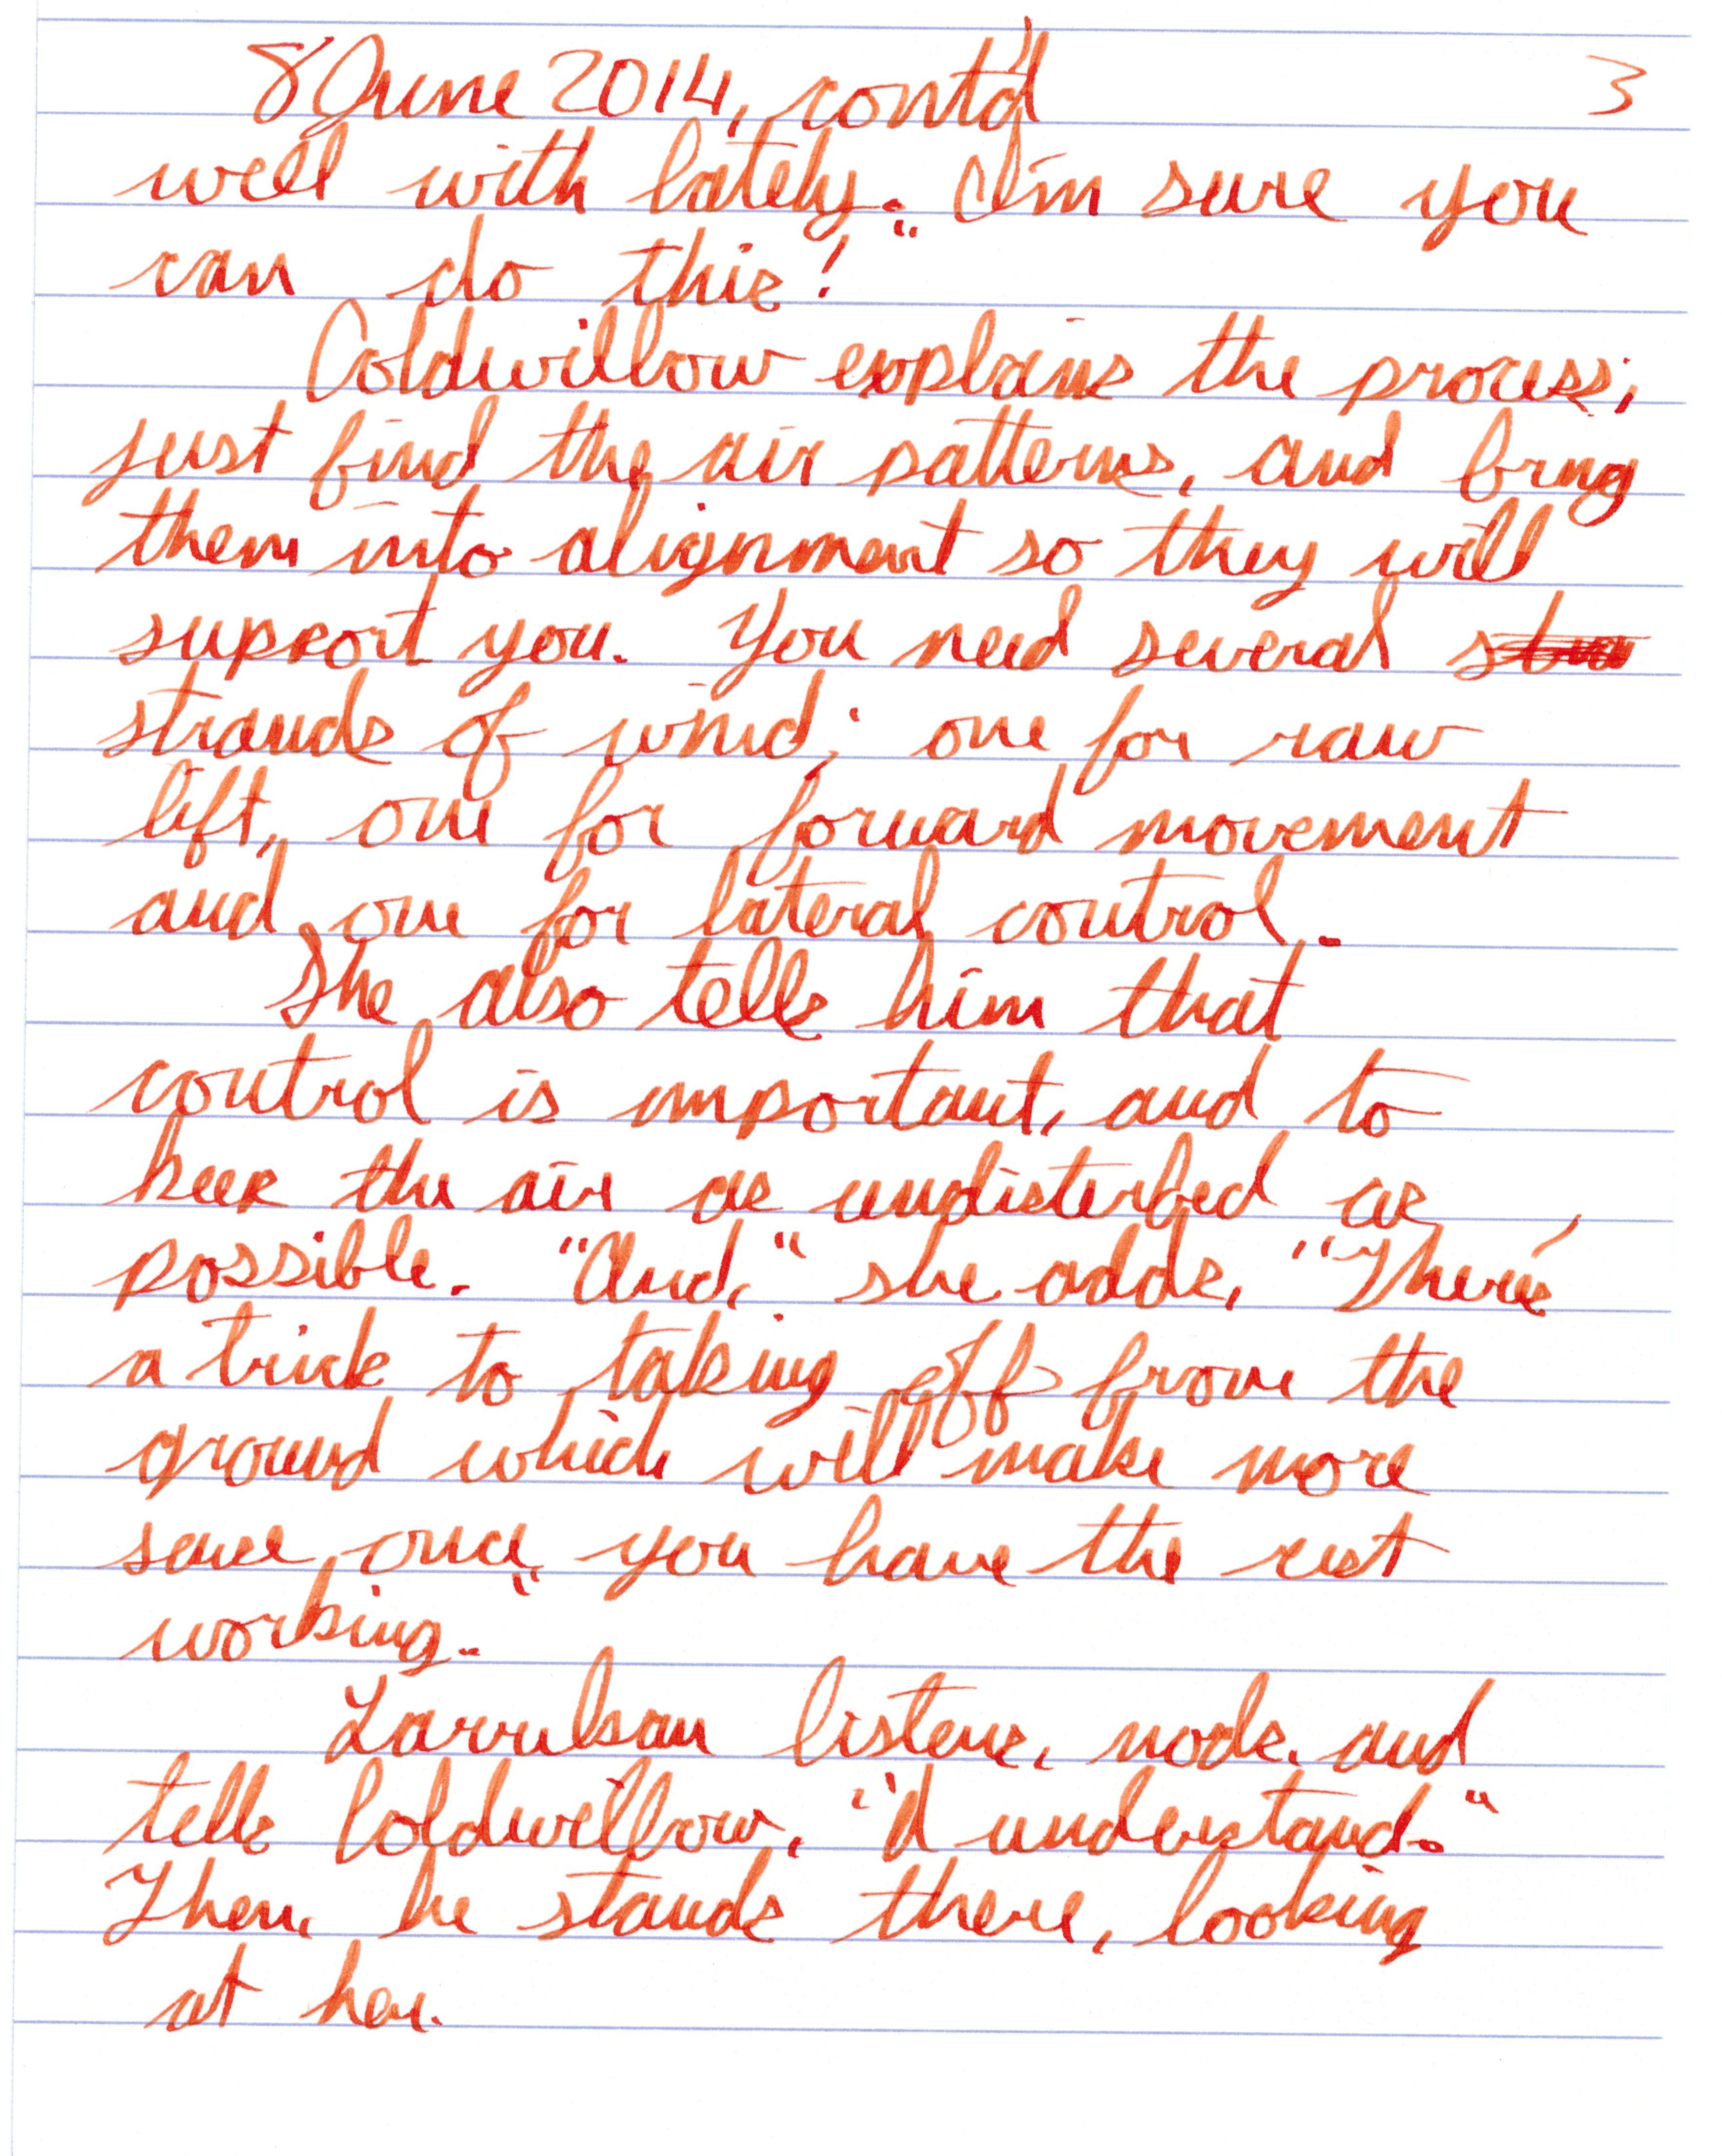 8 June 2014, cont'd 3
well with lately. I'm sure you
can do this!"
Coldwillow explains the process;
just find the air patterns, and bring
them into alignment so they will
support you. You need several
strands of wind; one for raw
lift, one for forward movement
and one for lateral control.
She also tells him that
control is important, and to
keep the air as undisterbed as
possible. "And," she adds, "There's
a trick to taking off from the
ground which will make more
sense once you have the rest
working."
Larrulsan listens, nods, and
tells Coldwillow, "I understand."
Then, he stands there, looking
at her.